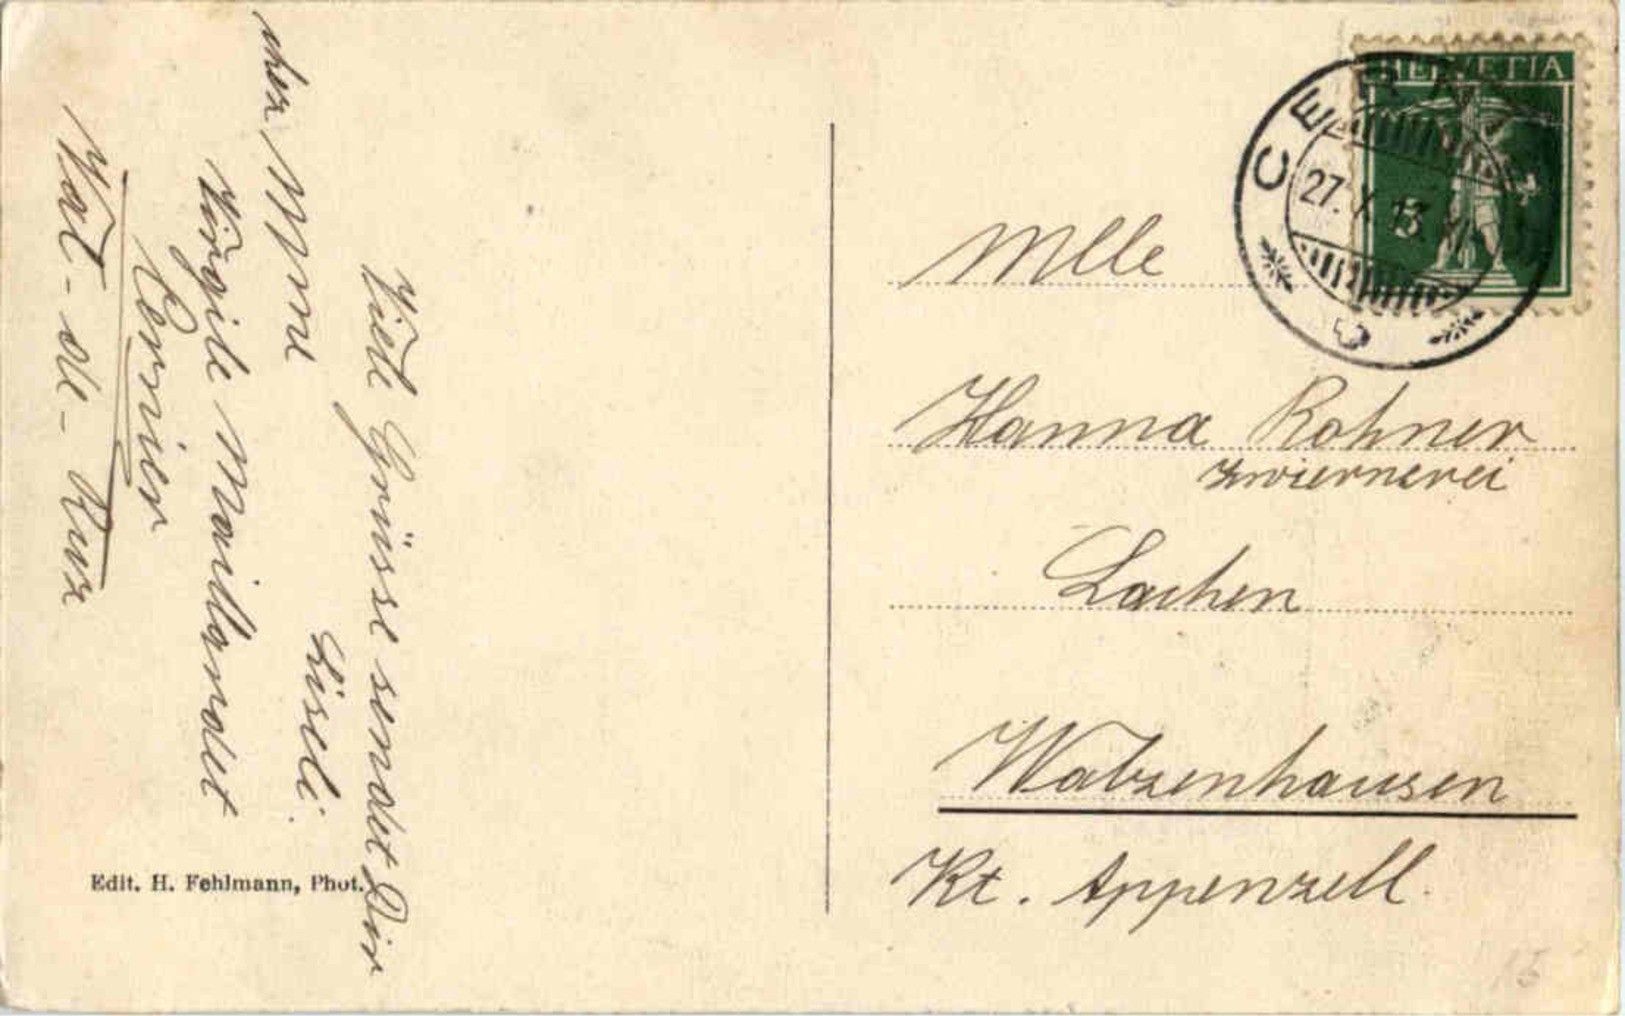 Viele Grüsse sendet Dir
Liseli.
chez Mme
Virgile Maillardet
Cernier
Val-de-Ruz
Edit. H. Fehlmann, Phot.
HELVETIA
CER
27. X. 13. XI
5
Mlle
Hanna Rohner
Zwiernerei
Lachen
Walzenhausen
Kt. Appenzell.
15